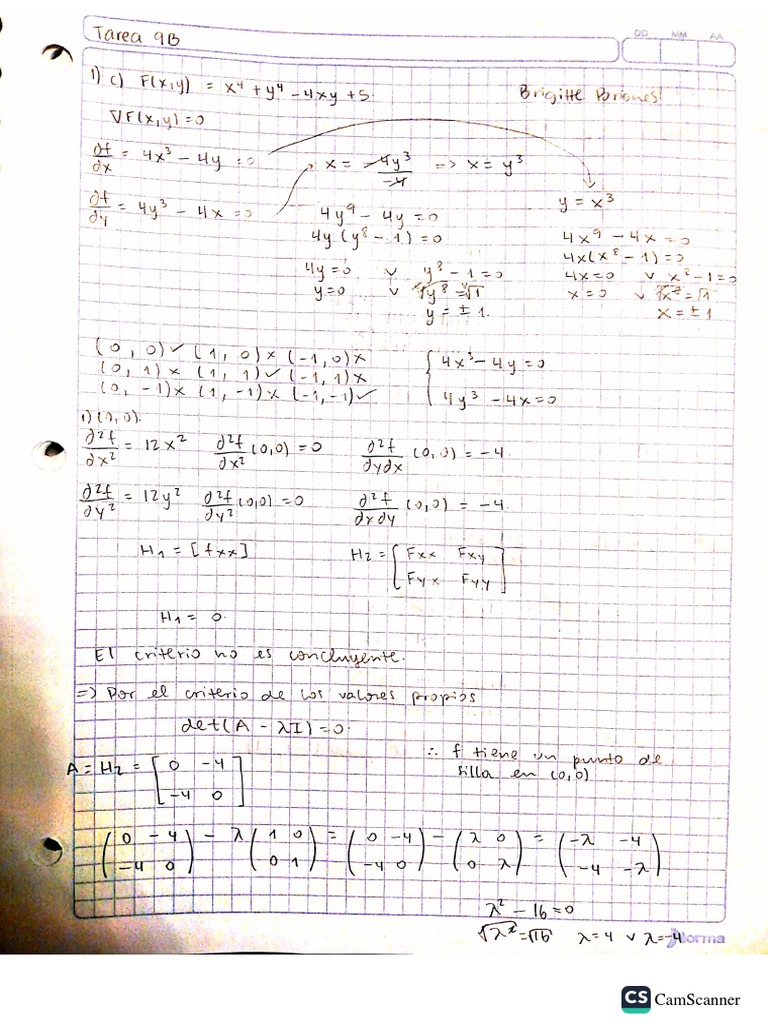 Tarea 9B
DD MM AA
1) c) F(x,y) = x⁴ + y⁴ - 4xy + 5.
Brigitte Briones
∇F(x,y) = 0
∂f/∂x = 4x³ - 4y = 0
x = -4y³/-4 => x = y³
y = x³
∂f/∂y = 4y³ - 4x = 0
4y⁹ - 4y = 0
4x⁹ - 4x = 0
4y (y⁸ - 1) = 0
4x(x⁸ - 1) = 0
4y = 0 ∨ y⁸ - 1 = 0
4x = 0 ∨ x⁸ - 1 = 0
y = 0 ∨ ⁸√y⁸ = ⁸√1
x = 0 ∨ ⁸√x⁸ = √1
y = ± 1.
x = ± 1
(0, 0) ✓ (1, 0) × (-1, 0) ×
(0, 1) × (1, 1) ✓ (-1, 1) ×
(0, -1) × (1, -1) × (-1, -1) ✓
{ 4x³ - 4y = 0
4y³ - 4x = 0
1) (0, 0).
∂²f/∂x² = 12x² ∂²f/∂x² (0,0) = 0 ∂²f/∂y∂x (0,0) = -4.
∂²f/∂y² = 12y² ∂²f/∂y² (0,0) = 0 ∂²f/∂x∂y (0,0) = -4.
H₁ = [fxx] H₂ = [Fxx Fxy
Fyx Fyy]
H₁ = 0.
El criterio no es concluyente.
=> Por el criterio de los valores propios
det(A - λI) = 0.
A = H₂ = [0 -4
-4 0]
∴ f tiene un punto de
silla en (0,0)
(0 -4) - λ (1 0) = (0 -4) - (λ 0) = (-λ -4)
(-4 0) (0 1) (-4 0) (0 λ) (-4 -λ)
λ² - 16 = 0
√λ² = √16 λ = 4 ∨ λ = -4
Norma
CS CamScanner